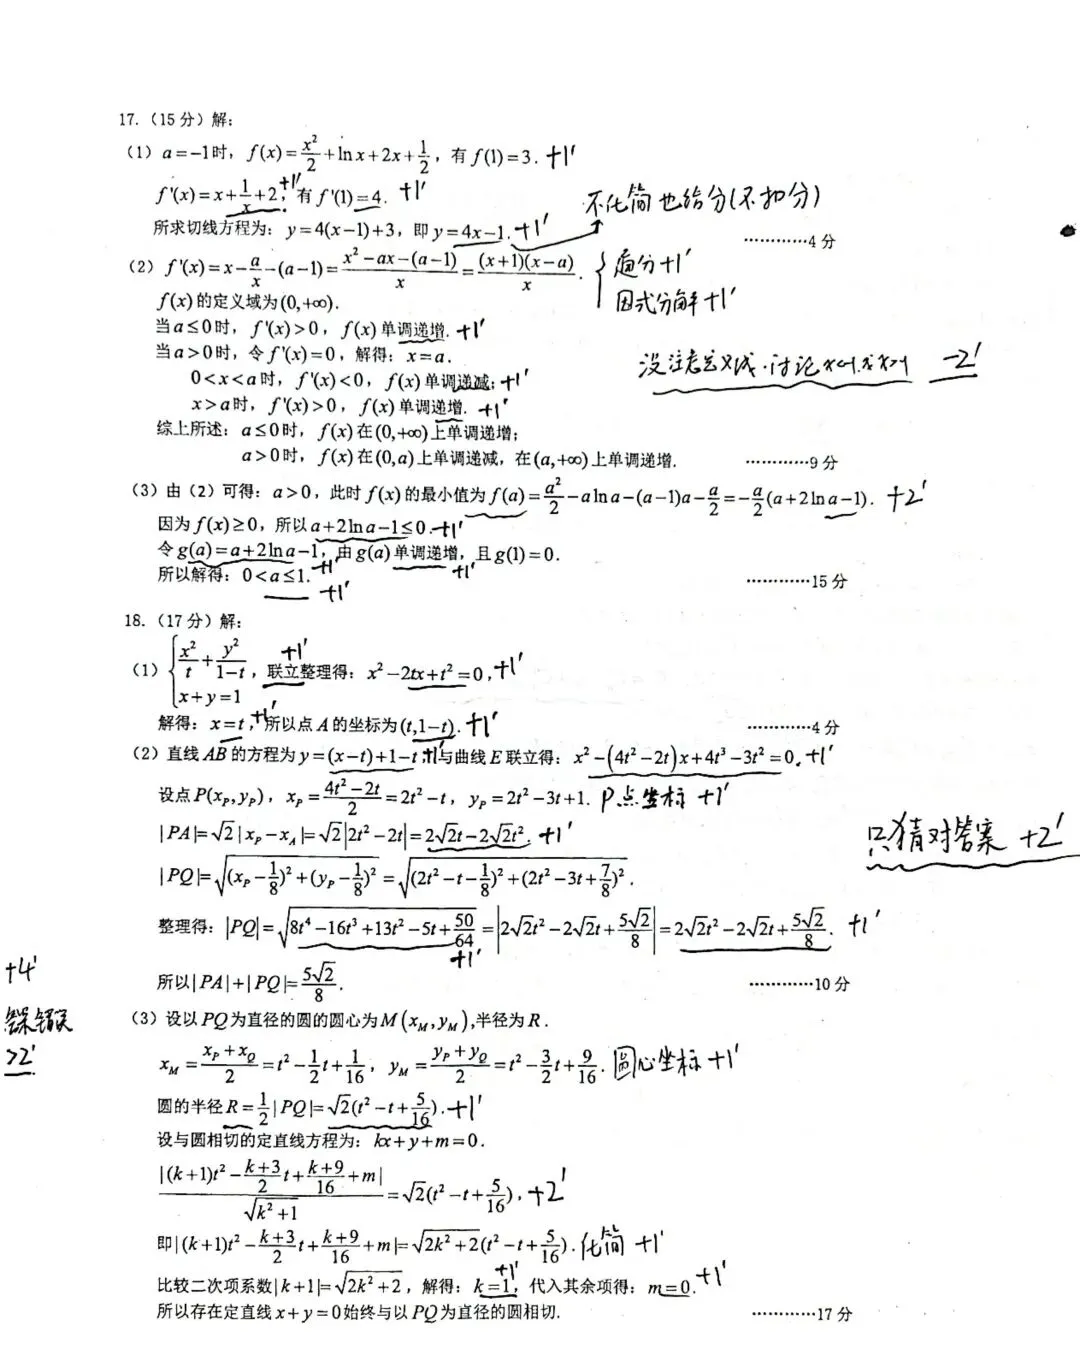 17.（15分）解：
（1）a=-1时，f(x)=x²/2+ln x+2x+1/2，有f(1)=3. +1′
f′(x)=x+1/x+2，+1′有f′(1)=4. +1′
不化简也给分(不扣分)
所求切线方程为：y=4(x-1)+3，即y=4x-1. +1′
…………4分
（2）f′(x)=x-a/x-(a-1)=(x²-ax-(a-1))/x=(x+1)(x-a)/x.
通分+1′
因式分解+1′
f(x)的定义域为(0,+∞).
当a≤0时，f′(x)>0，f(x)单调递增. +1′
当a>0时，令f′(x)=0，解得：x=a.
没注意定义域.讨论 -2′
0<x<a时，f′(x)<0，f(x)单调递减；+1′
x>a时，f′(x)>0，f(x)单调递增. +1′
综上所述：a≤0时，f(x)在(0,+∞)上单调递增；
a>0时，f(x)在(0,a)上单调递减，在(a,+∞)上单调递增.
…………9分
（3）由（2）可得：a>0，此时f(x)的最小值为f(a)=a²/2-aln a-(a-1)a-a/2=-a/2(a+2ln a-1). +2′
因为f(x)≥0，所以a+2ln a-1≤0. +1′
令g(a)=a+2ln a-1，+1′由g(a)单调递增，+1′且g(1)=0.
所以解得：0<a≤1. +1′
…………15分
18.（17分）解：
（1）{x²/t+y²/(1-t)，x+y=1 +1′联立整理得：x²-2tx+t²=0，+1′
解得：x=t，+1′所以点A的坐标为(t,1-t). +1′
…………4分
（2）直线AB的方程为y=(x-t)+1-t，+1′与曲线E联立得：x²-(4t²-2t)x+4t³-3t²=0. +1′
设点P(x_P,y_P)，x_P=(4t²-2t)/2=2t²-t，y_P=2t²-3t+1. P点坐标 +1′
|PA|=√2|x_P-x_A|=√2|2t²-2t|=2√2t-2√2t². +1′
只猜对答案 +2′
|PQ|=√((x_P-1/8)²+(y_P-1/8)²)=√((2t²-t-1/8)²+(2t²-3t+7/8)²).
整理得：|PQ|=√(8t⁴-16t³+13t²-5t+50/64)=|2√2t²-2√2t+5√2/8|=2√2t²-2√2t+5√2/8. +1′
+1′
所以|PA|+|PQ|=5√2/8.
…………10分
+4′
>2′
（3）设以PQ为直径的圆的圆心为M(x_M,y_M),半径为R.
x_M=(x_P+x_Q)/2=t²-1/2t+1/16，y_M=(y_P+y_Q)/2=t²-3/2t+9/16. 圆心坐标 +1′
圆的半径R=1/2|PQ|=√2(t²-t+5/16). +1′
设与圆相切的定直线方程为：kx+y+m=0.
|(k+1)t²-(k+3)/2t+(k+9)/16+m|/√(k²+1)=√2(t²-t+5/16)，+2′
即|(k+1)t²-(k+3)/2t+(k+9)/16+m|=√(2k²+2)(t²-t+5/16). 化简 +1′
比较二次项系数|k+1|=√(2k²+2)，解得：k=1，+1′代入其余项得：m=0. +1′
所以存在定直线x+y=0始终与以PQ为直径的圆相切.
…………17分